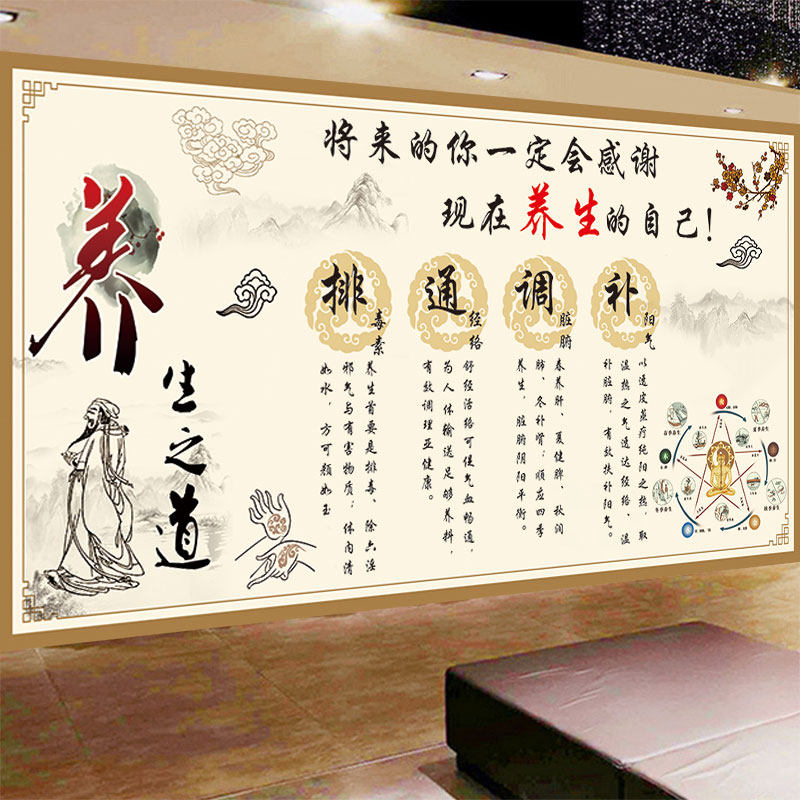 将来的你一定会感谢
现在养生的自己!
养
生之道
排毒素
养生首要是排毒、除六淫
邪气与有害物质;体内清
如水,方可颜如玉
通经络
舒经活络可使气血畅通,
为人体输送足够养料,
有效调理亚健康。
调脏腑
春养肝、夏健脾、秋润
肺、冬补肾;顺应四季
养生,脏腑阴阳平衡。
补阳气
以透皮蒸疗纯阳之热,取
温热之气透达经络、温
补脏腑,有效扶补阳气。
火
春季养生
夏季养生
木
冬季养生
秋季养生